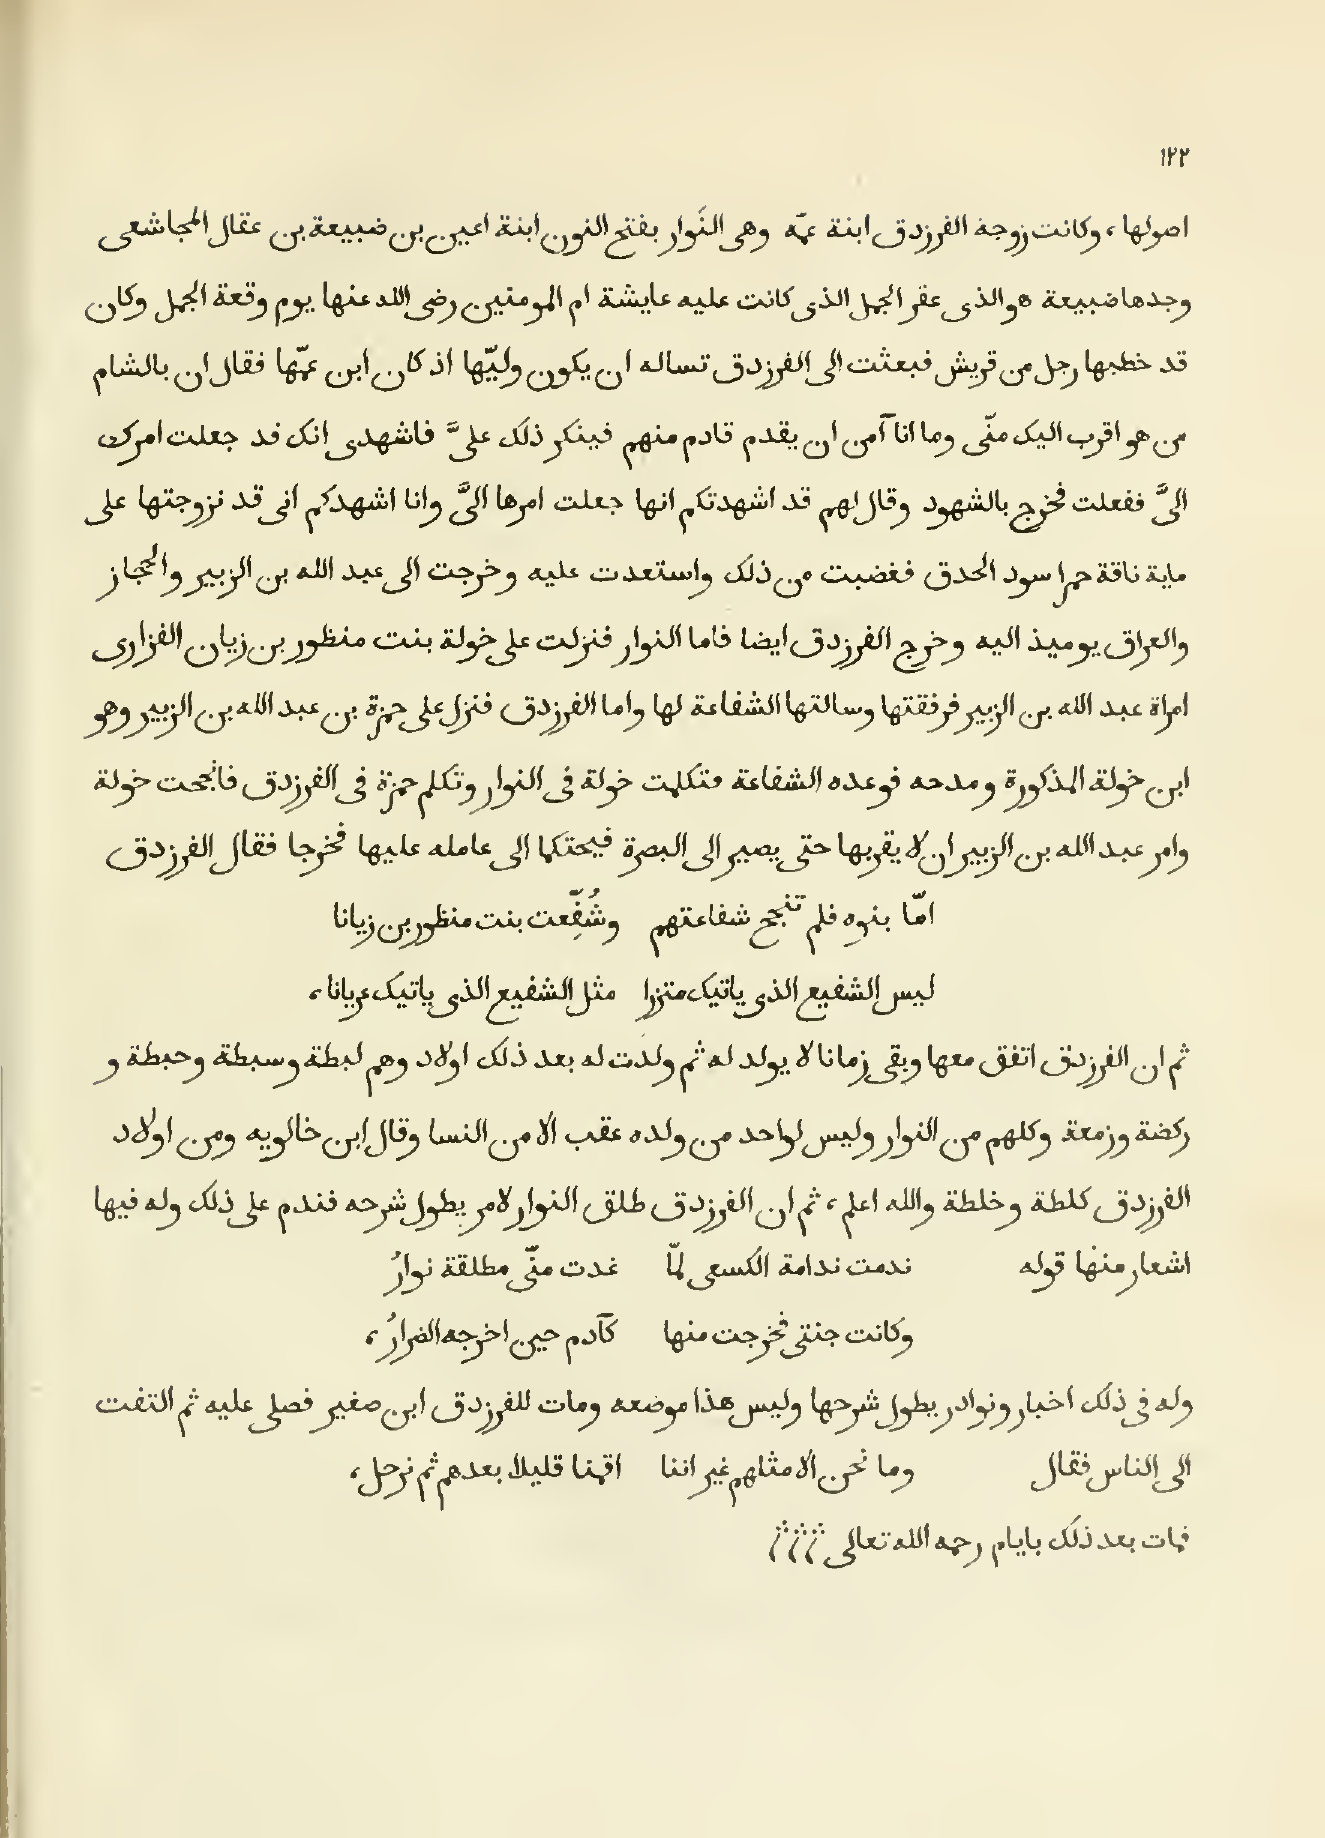 ١٢٢
اصولها، وكانت زوجة الفرزدق ابنة عمّه وهى النَوار بفتح النون ابنة اعين بن ضبيعة بن عقال المجاشعى
وجدها ضبيعة هو الذى عقر الجمل الذى كانت عليه عايشة ام المومنين رضى الله عنها يوم وقعة الجمل وكان
قد خطبها رجل من قريش فبعثت الى الفرزدق تساله ان يكون وليّها اذ كان ابن عمّها فقال ان بالشام
من هو اقرب اليك منّى وما انا آمن ان يقدم قادم منهم فينكر ذلك علىَّ فاشهدى انك قد جعلت امرك
الىَّ ففعلت فخرج بالشهود وقال لهم قد اشهدتكم انها جعلت امرها الىَّ وانا اشهدكم انى قد تزوجتها على
ماية ناقة حمرا سود الحدق فغضبت من ذلك واستعدت عليه وخرجت الى عبد الله بن الزبير والحجاز
والعراق يوميذ اليه وخرج الفرزدق ايضا فاما النوار فنزلت على خولة بنت منظور بن زيان الفزارى
امراة عبد الله بن الزبير فرفقتها وسالتها الشفاعة لها واما الفرزدق فنزل على حمزة بن عبد الله بن الزبير وهو
ابن خولة المذكورة ومدحه فوعده الشفاعة فتكلمت خولة فى النوار وتكلم حمزة فى الفرزدق فانجحت خولة
وامر عبد الله بن الزبير ان لا يقربها حتى يصير الى البصرة فيحتكما الى عامله عليها فخرجا فقال الفرزدق
امّا بنوه فلم تنجح شفاعتهم وشُفِّعت بنت منظور بن زيانا
ليس الشفيع الذى ياتيك متزرا مثل الشفيع الذى ياتيك عريانا،
ثم ان الفرزدق اتفق معها وبقى زمانا لا يولد له ثم ولدت له بعد ذلك اولاد وهم لبطة وسبطة وحبطة و
ركضة وزمعة وكلهم من النوار وليس لواحد من ولده عقب الا من النسا وقال ابن خالويه ومن اولاد
الفرزدق كلطة وخلطة والله اعلم، ثم ان الفرزدق طلق النوار لامر يطول شرحه فندم على ذلك وله فيها
اشعار منها قوله ندمت ندامة الكسعى لمّا غدت منّى مطلقة نوارُ
وكانت جنتى فخرجت منها كآدم حين اخرجه الضرارُ،
وله فى ذلك اخبار ونوادر يطول شرحها وليس هذا موضعه ومات للفرزدق ابن صغير فصلى عليه ثم التفت
الى الناس فقال وما نحن الا مثلهم غير اننا اقمنا قليلا بعدهم ثم نرحل،
فمات بعد ذلك بايام رحمه الله تعالى